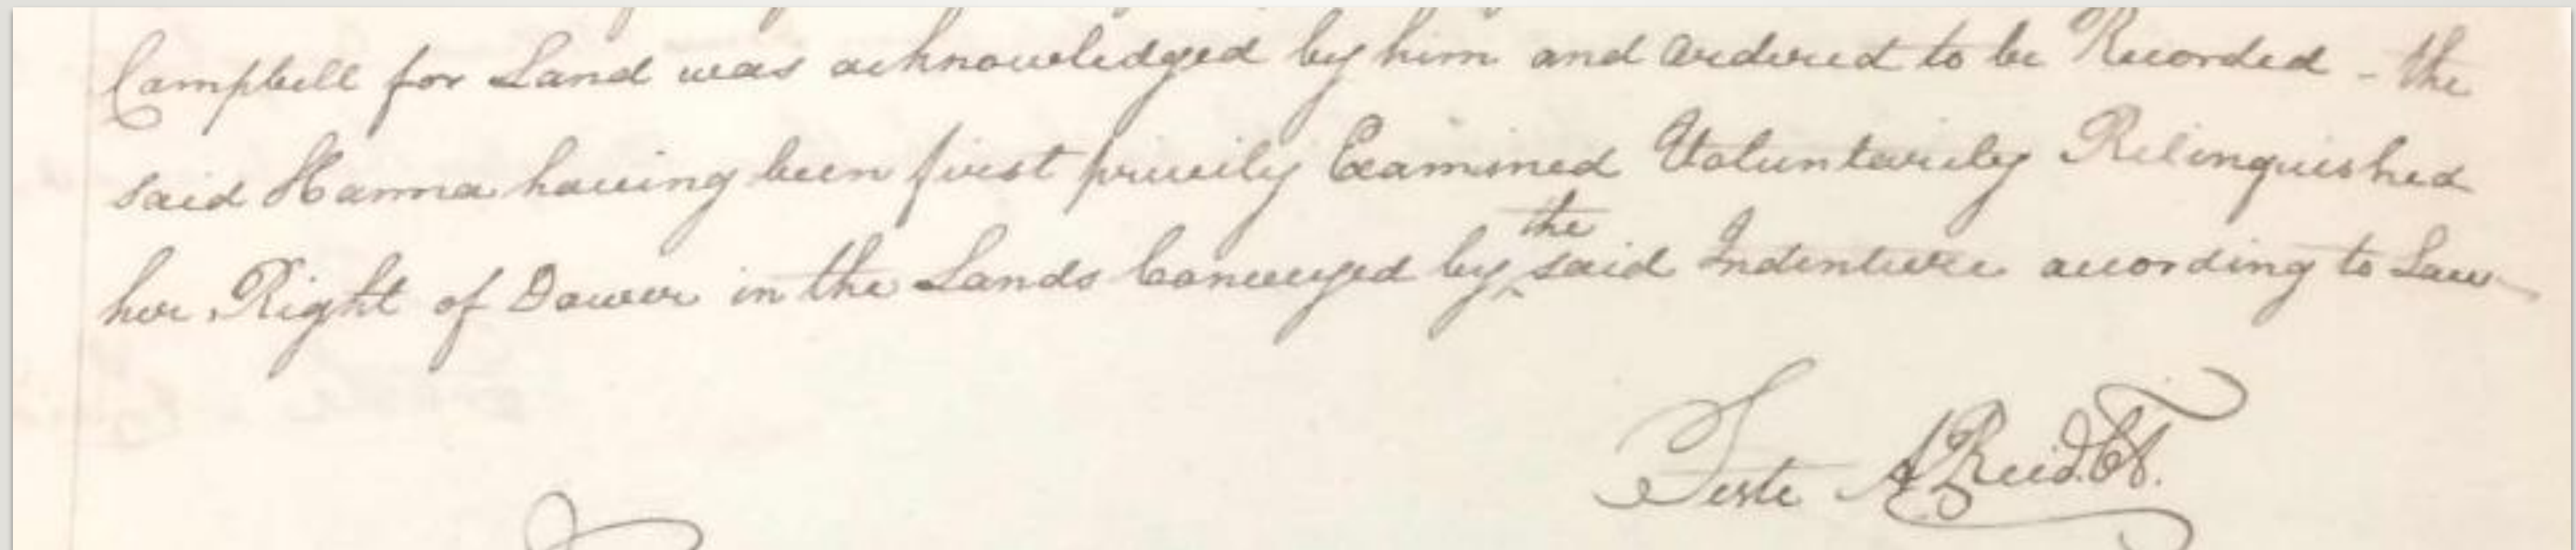 Campbell for Land was acknowledged by him and Ordered to be Recorded - the
said Hanna having been first privily Examined Voluntarily Relinquished
the
her Right of Dower in the Lands Conveyed by ‸ said Indenture acording to Law
Teste A Reid. Ck.